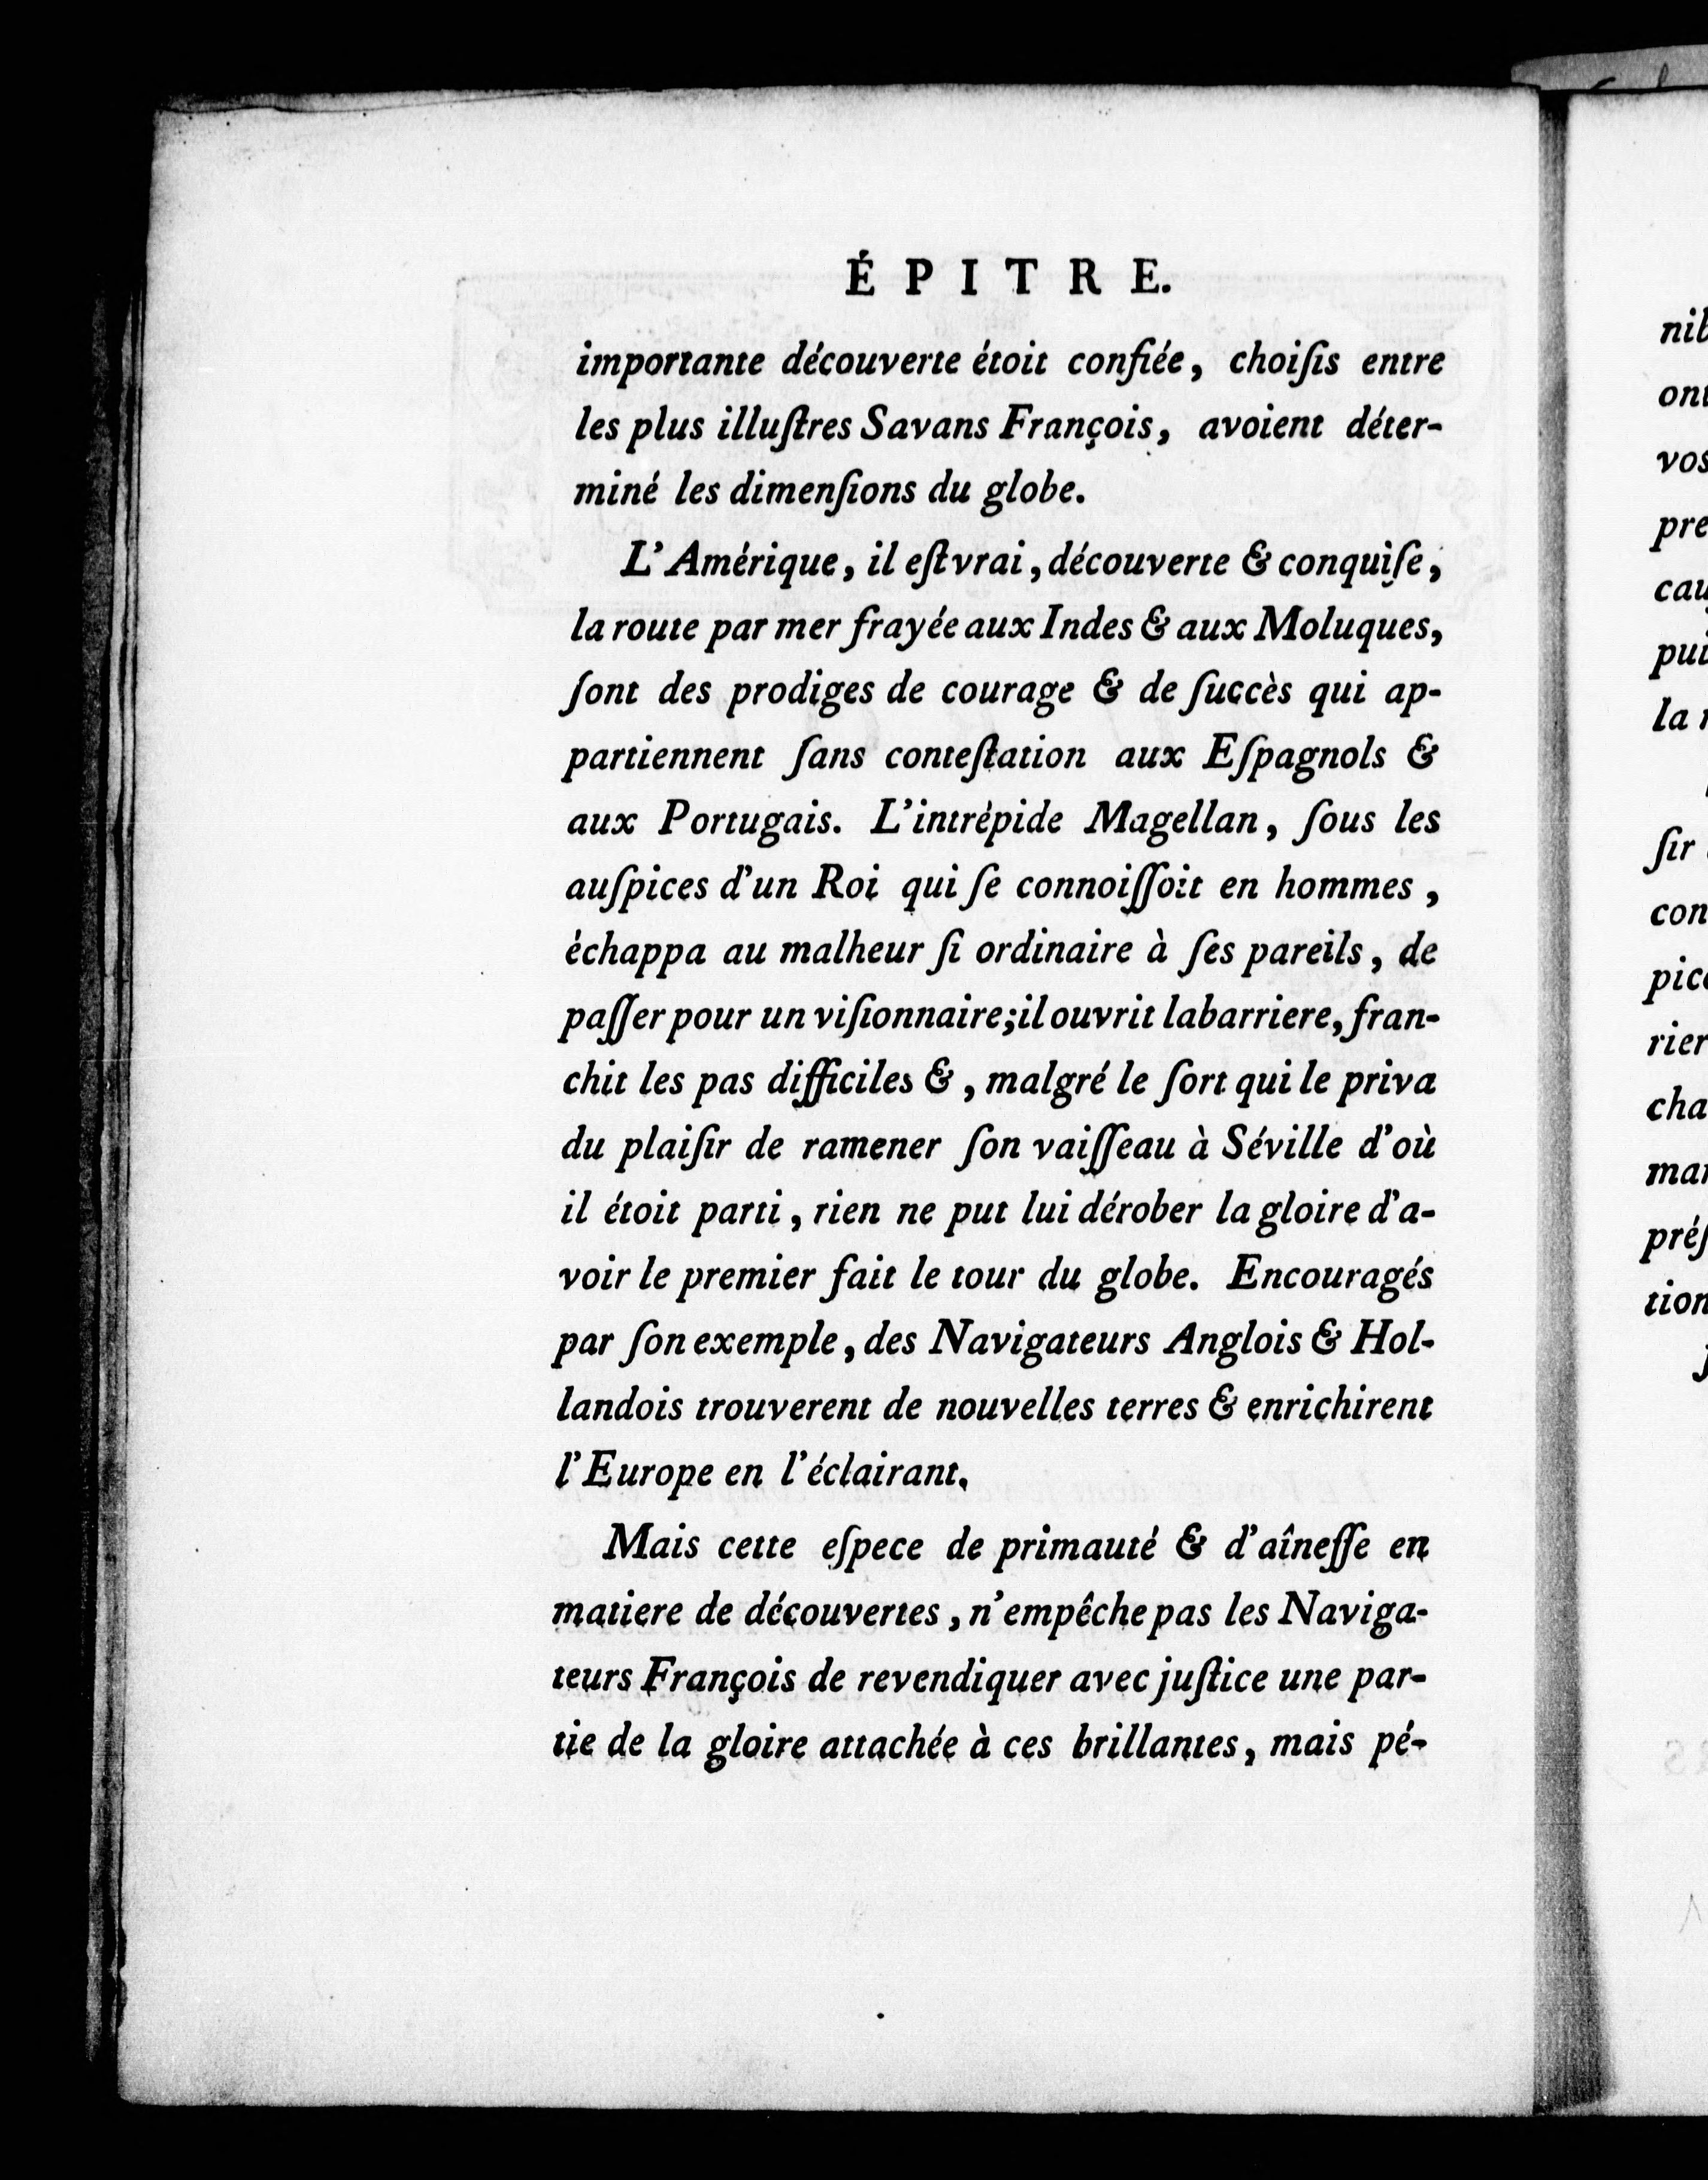 ÉPITRE.
importante découverte étoit confiée, choiſis entre
les plus illuſtres Savans François, avoient déter-
miné les dimenſions du globe.
L'Amérique, il eſt vrai, découverte & conquiſe,
la route par mer frayée aux Indes & aux Moluques,
ſont des prodiges de courage & de ſuccès qui ap-
partiennent ſans conteſtation aux Eſpagnols &
aux Portugais. L'intrépide Magellan, ſous les
auſpices d'un Roi qui ſe connoiſſoit en hommes,
échappa au malheur ſi ordinaire à ſes pareils, de
paſſer pour un viſionnaire; il ouvrit la barriere, fran-
chit les pas difficiles &, malgré le ſort qui le priva
du plaiſir de ramener ſon vaiſſeau à Séville d'où
il étoit parti, rien ne put lui dérober la gloire d'a-
voir le premier fait le tour du globe. Encouragés
par ſon exemple, des Navigateurs Anglois & Hol-
landois trouverent de nouvelles terres & enrichirent
l'Europe en l'éclairant.
Mais cette eſpece de primauté & d'aîneſſe en
matiere de découvertes, n'empêche pas les Naviga-
teurs François de revendiquer avec juſtice une par-
tie de la gloire attachée à ces brillantes, mais pé-